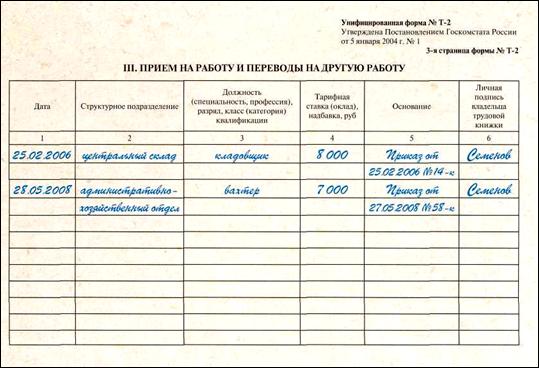 Унифицированная форма № Т-2
Утверждена Постановлением Госкомстата России
от 5 января 2004 г. № 1
3-я страница формы № Т-2
III. ПРИЕМ НА РАБОТУ И ПЕРЕВОДЫ НА ДРУГУЮ РАБОТУ
Дата
Структурное подразделение
Должность
(специальность, профессия),
разряд, класс (категория)
квалификации
Тарифная
ставка (оклад),
надбавка, руб
Основание
Личная
подпись
владельца
трудовой
книжки
1 2 3 4 5 6
25.02.2006 центральный склад кладовщик 8 000 Приказ от Семенов
25.02.2006 №14-к
28.05.2008 административно- вахтер 7 000 Приказ от Семенов
хозяйственный отдел 27.05.2008 №58-к